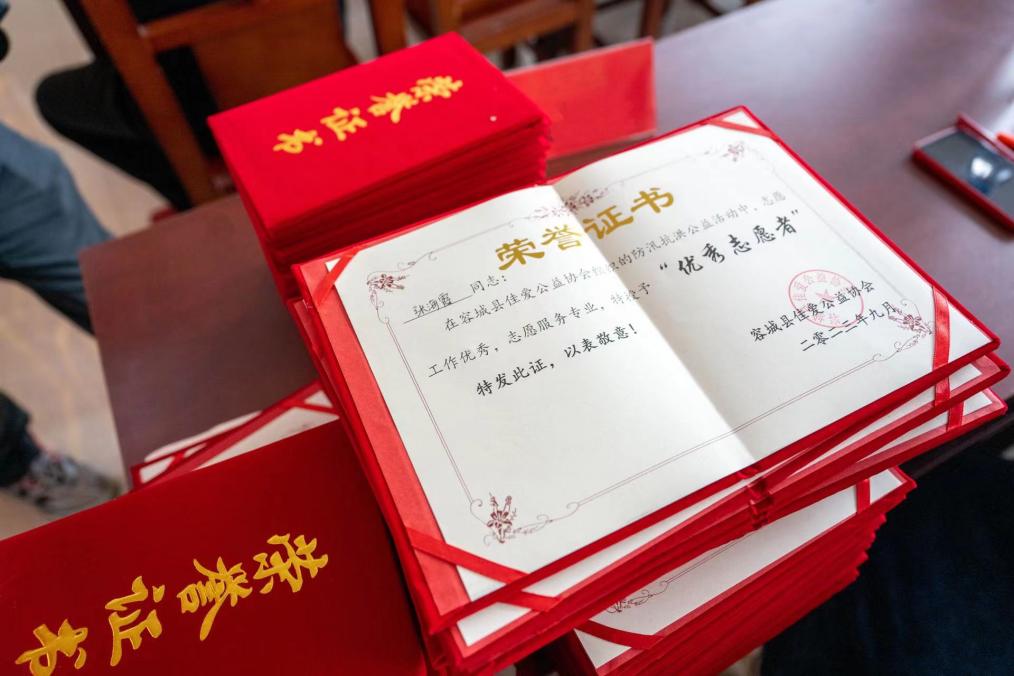 荣誉证书
荣誉证书
张海霞 同志：
在容城县佳爱公益协会组织的防汛抗洪公益活动中，志愿
工作优秀，志愿服务专业，特授予 “优秀志愿者”
特发此证，以表敬意！
容城县佳爱公益协会
二零二三年九月
荣誉证书